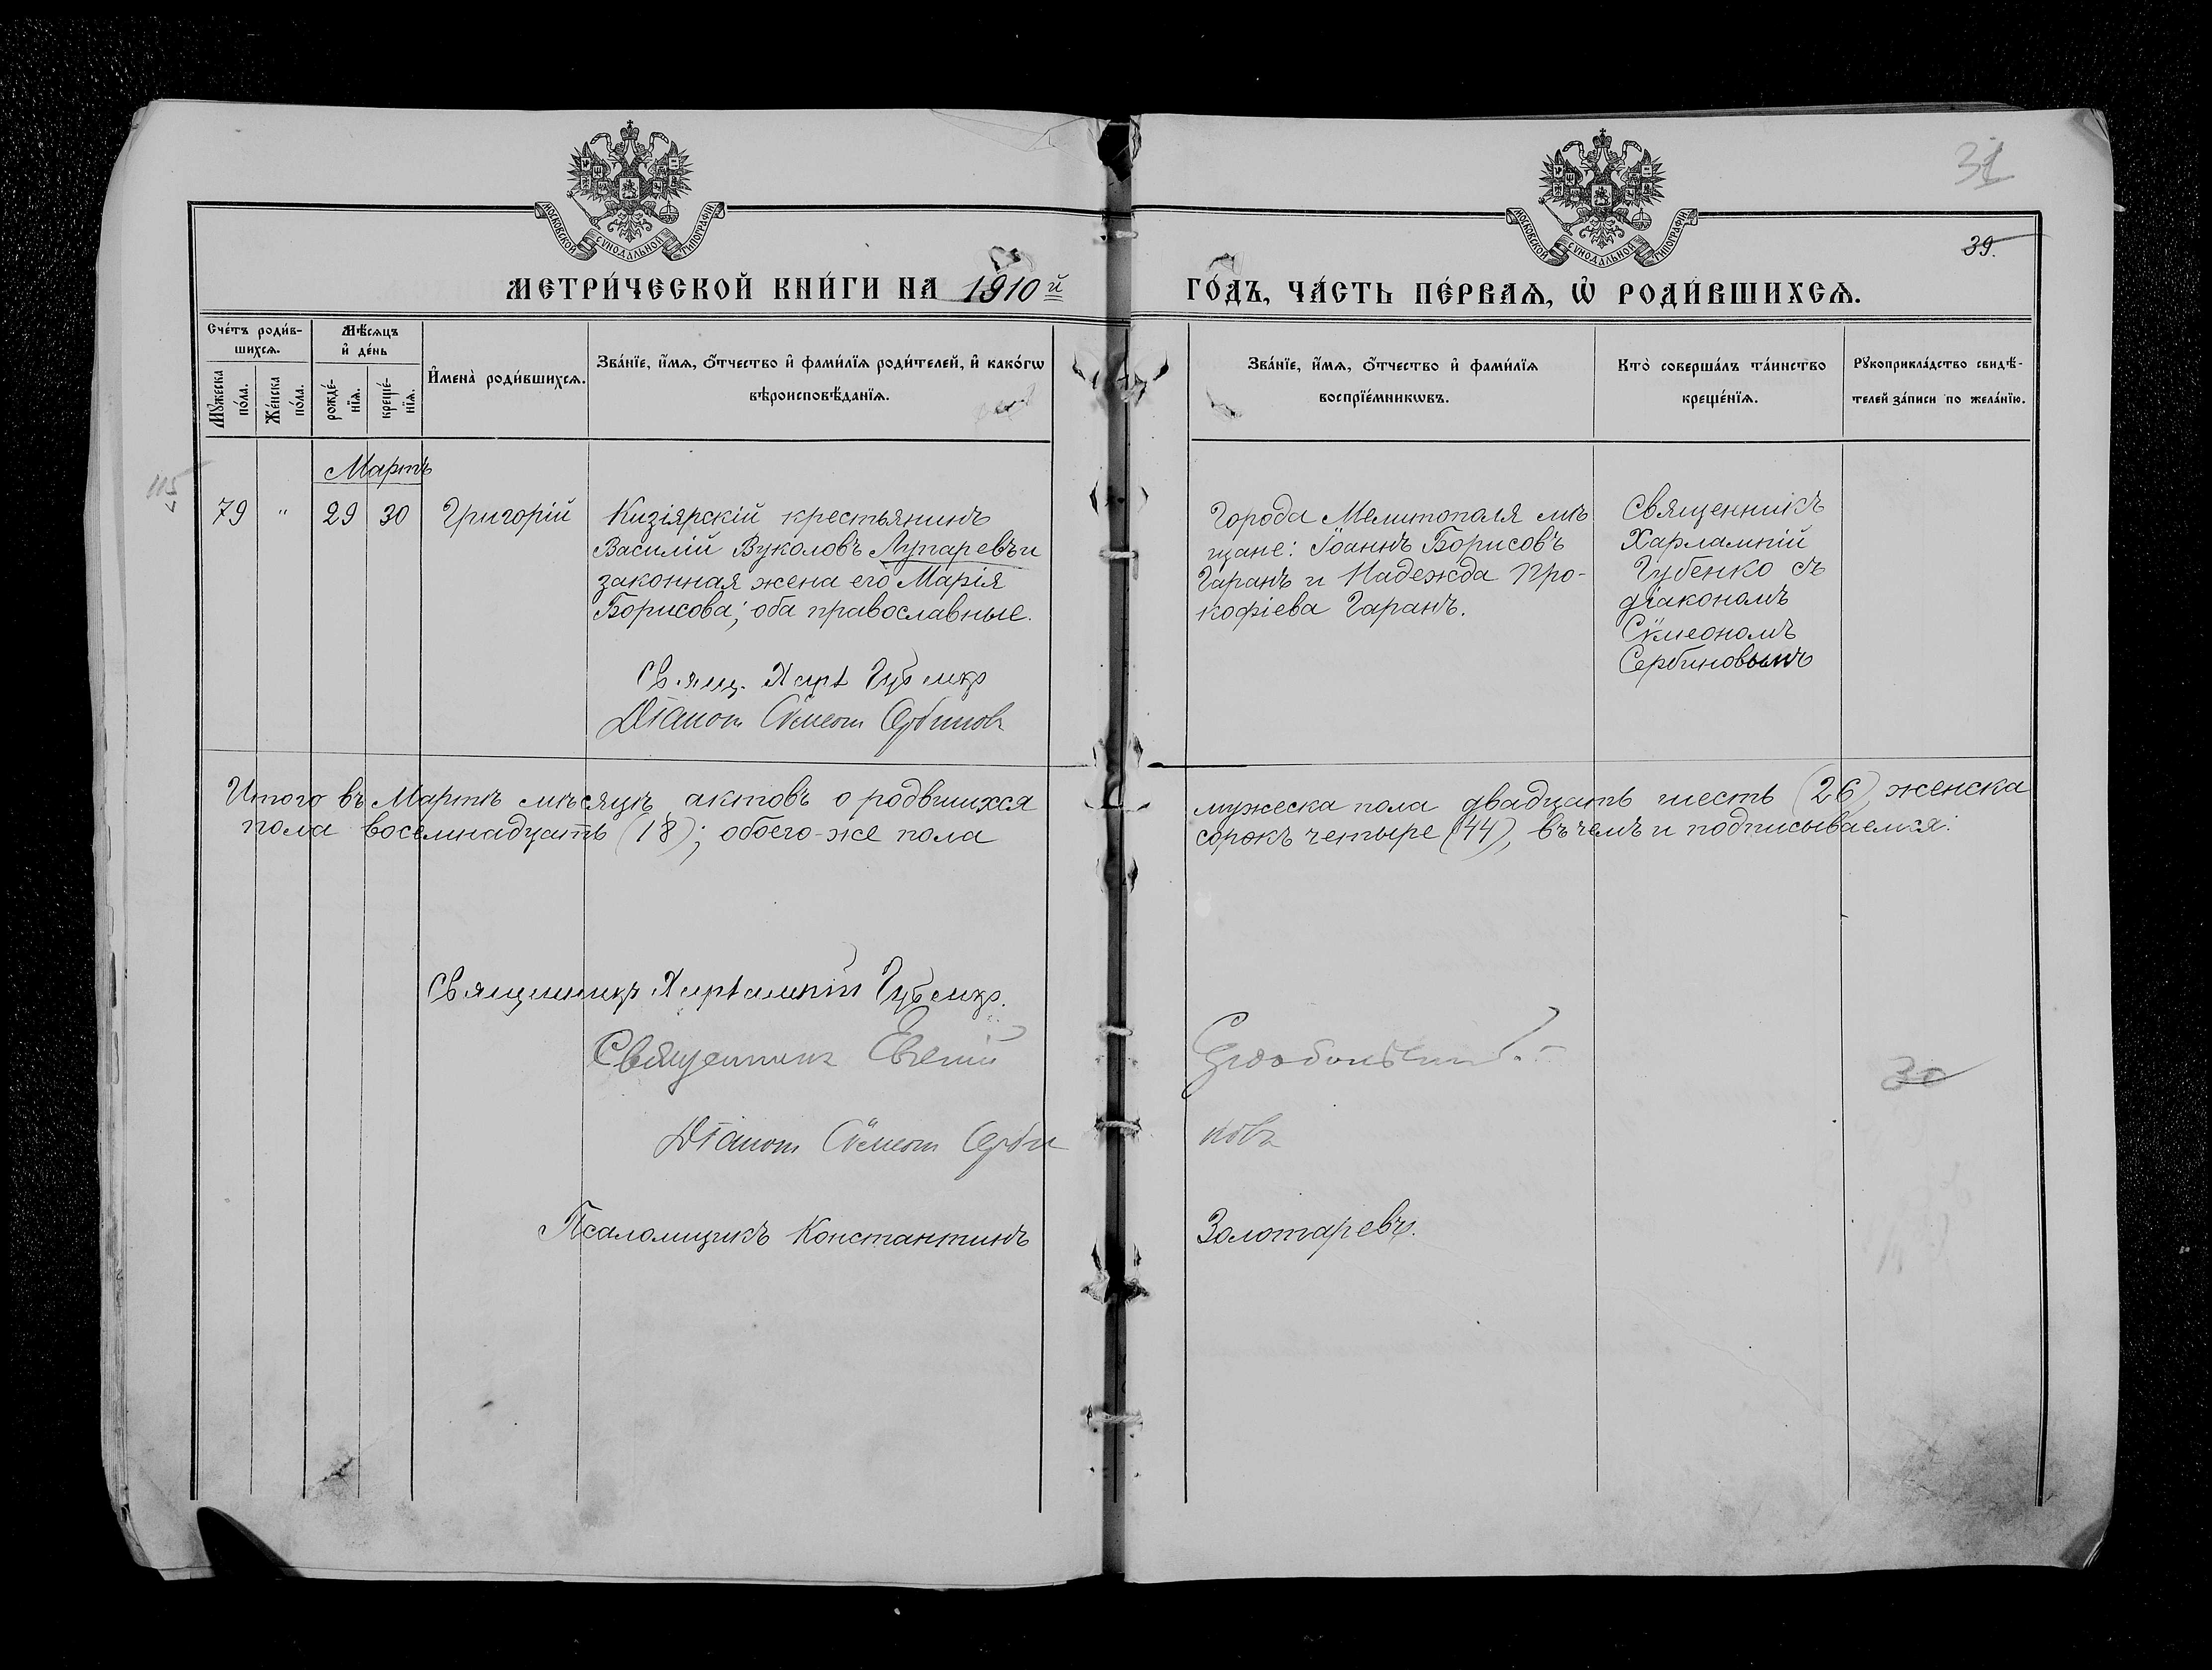 МОСКОВСКОЙ СУНОДАЛЬНОЙ ТИПОГРАФІИ
МОСКОВСКОЙ СУНОДАЛЬНОЙ ТИПОГРАФІИ
31
39.
МЕТРИ́ЧЕСКОЙ КНИ́ГИ НА 1910й
ГО́ДЪ, ЧА́СТЬ ПЕ́РВАѦ, Ѡ҆ РОДИ́ВШИХСѦ.
Сче́тъ роди́в-
шихсѧ.
Мꙋ́жеска по́ла.
Же́нска по́ла.
Мѣ́сѧцъ
и҆ де́нь
рожде́-
нїѧ.
креще́-
нїѧ.
И҆мена̀ роди́вшихсѧ.
Зва́нїе, и҆́мѧ, ѻ҆́тчество и҆ фами́лїѧ роди́телей, и҆ како́гѡ
вѣроисповѣ́данїѧ.
Зва́нїе, и҆́мѧ, ѻ҆́тчество и҆ фами́лїѧ
воспрїе́мникѡвъ.
Кто̀ соверша́лъ та́инство
креще́нїѧ.
Рꙋкоприкла́дство свидѣ́-
телей за́писи по жела́нїю.
115
Мартъ
79 " 29 30 Григорій
Кизіярскій крестьянинъ
Василій Вуколовъ Лупаревъ и
законная жена его Марія
Борисова; оба православные.
Города Мелитополя мѣ
щане: Іоаннъ Борисовъ
Гаранъ и Надежда Про-
кофіева Гаранъ.
Священникъ
Харлампій
Губенко съ
діакономъ
Сѵмеономъ
Сербиновымъ
Свящ. Харл Губенко
Діаконъ Сѵмеонъ Сербиновъ
Итого въ Мартѣ мѣсяцѣ актовъ о родвшихся мужеска пола двадцать шесть (26), женска
пола восемнадцать (18); обоего-же пола сорокъ четыре (44), въ чемъ и подписываемся:
Священникъ Харлампій Губенко.
Священникъ Евгеній
30
Діаконъ Сѵмеонъ Сербиновъ
Псаломщикъ Константинъ Золотаревъ.